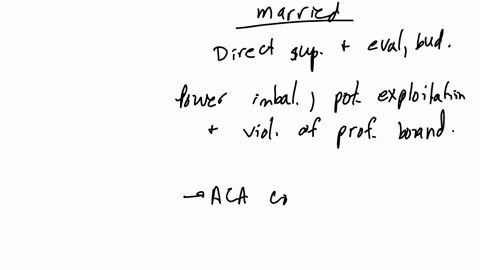 married
Direct sup. + eval, bud.
Power imbal., pot. exploitation
+ viol. of prof. bound.
→ ACA co